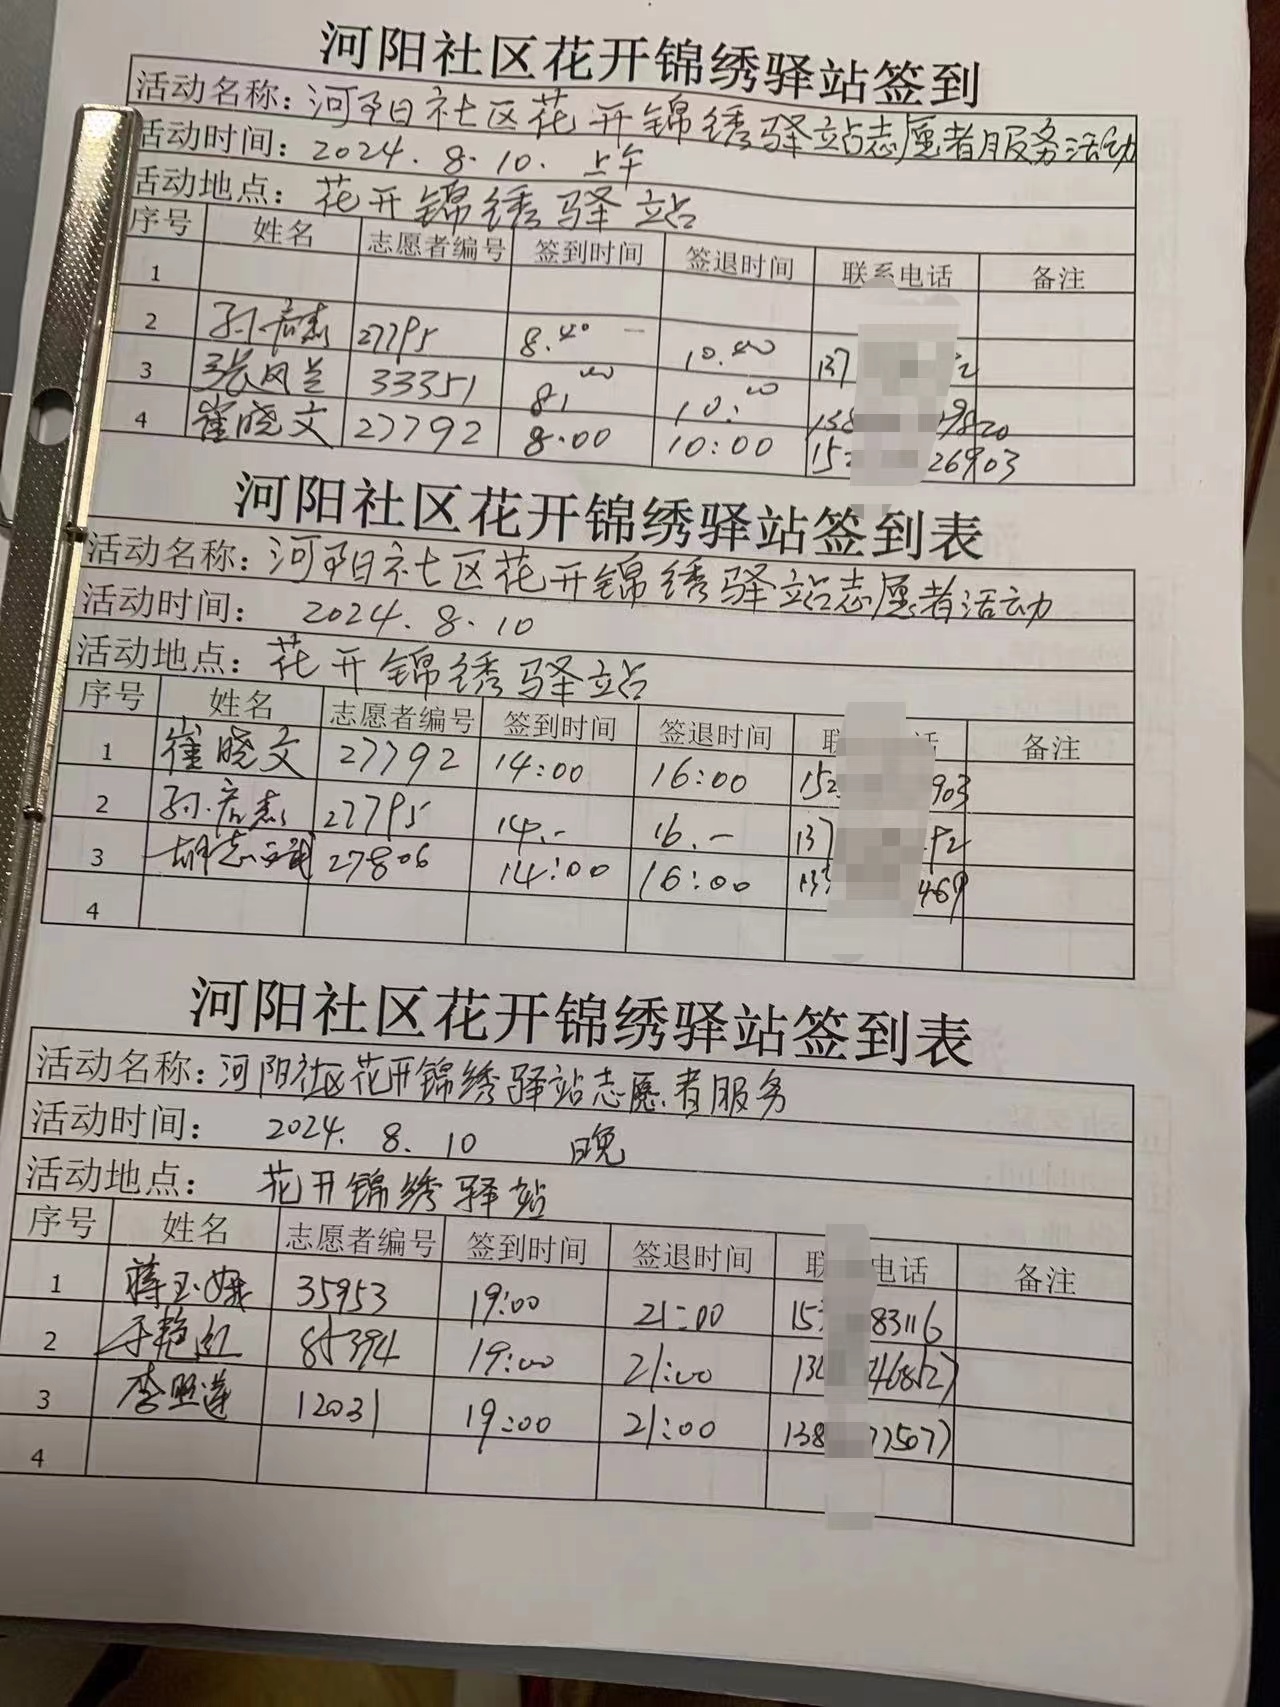 河阳社区花开锦绣驿站签到
活动名称：河阳社区花开锦绣驿站志愿者服务活动
活动时间：2024.8.10. 上午
活动地点：花开锦绣驿站
序号 姓名 志愿者编号 签到时间 签退时间 联系电话 备注
1
2 27795 8.40 10.40 137
3 张凤兰 33351 8:00 10:00 138 9820
4 崔晓文 27792 8:00 10:00 152 26903
河阳社区花开锦绣驿站签到表
活动名称：河阳社区花开锦绣驿站志愿者活动
活动时间： 2024.8.10
活动地点：花开锦绣驿站
序号 姓名 志愿者编号 签到时间 签退时间 联 话 备注
1 崔晓文 27792 14:00 16:00 152 903
2 27795 14.- 16.- 137 92
3 27806 14:00 16:00 13 469
4
河阳社区花开锦绣驿站签到表
活动名称：河阳社区花开锦绣驿站志愿者服务
活动时间： 2024.8.10 晚
活动地点： 花开锦绣驿站
序号 姓名 志愿者编号 签到时间 签退时间 联 电话 备注
1 蒋玉娥 35953 19:00 21:00 15 83116
2 于艳红 85394 19:00 21:00 13 468
3 李照莲 12031 19:00 21:00 138 77507
4